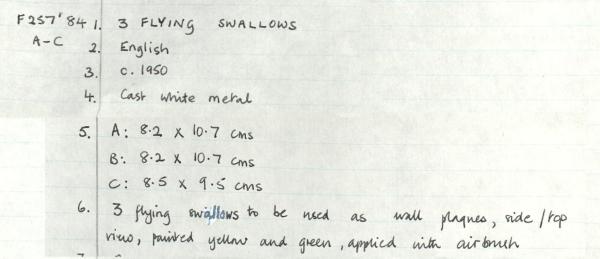 F257'84 1. 3 FLYING SWALLOWS
A-C 2. English
3. c. 1950
4. Cast white metal
5. A: 8.2 x 10.7 cms
B: 8.2 x 10.7 cms
C: 8.5 x 9.5 cms
6. 3 flying swallows to be used as wall plaques, side/top
view, painted yellow and green, applied with airbrush